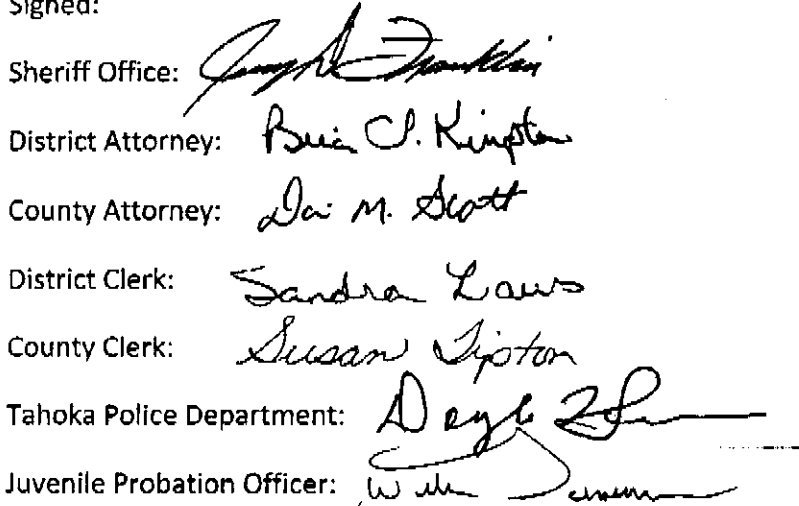 Signed:
Sheriff Office: Franklin
District Attorney: Kingston
County Attorney: M. Scott
District Clerk: Sandra Laws
County Clerk: Susan Tipton
Tahoka Police Department:
Juvenile Probation Officer: